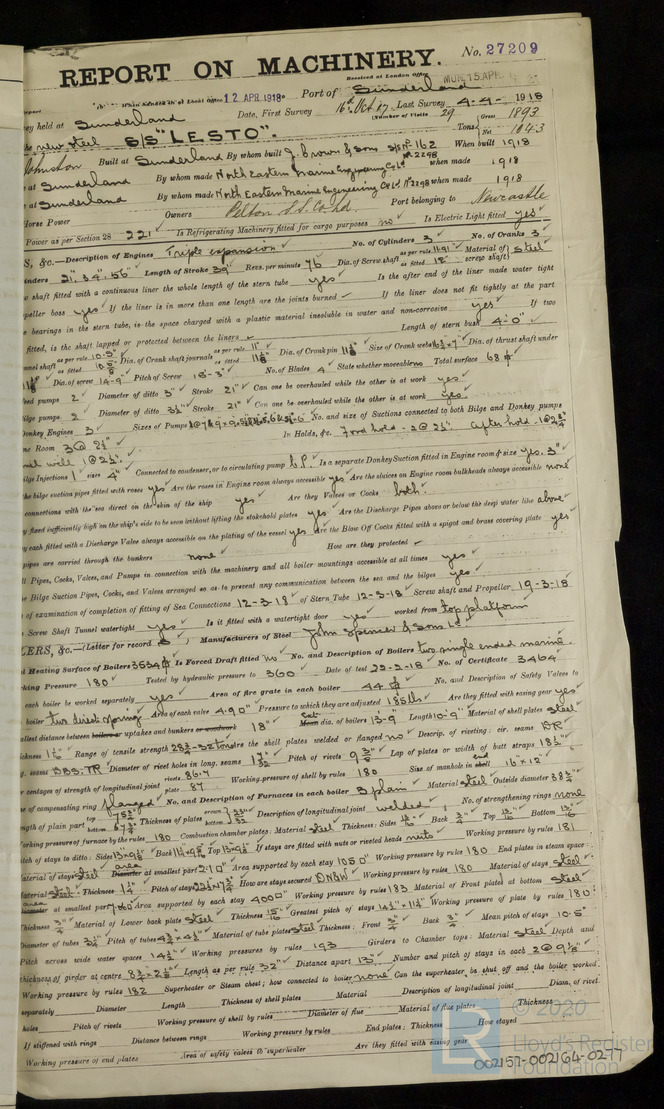 REPORT ON MACHINERY. No. 27209
Received at London Office MON. 15 APR.
When handed in at Local Office 12 APR. 1918 Port of Sunderland
held at Sunderland Date, First Survey 16th Oct 17 Last Survey 4-4- 1918
(Number of Visits 29
new steel S/S "LESTO". Tons Gross 1893 Net 1043
Johnston Built at Sunderland By whom built J. Crown & Sons S/S No 162 When built 1918
at Sunderland By whom made North Eastern Marine Engineering Co Ld No 2298 when made 1918
at Sunderland By whom made North Eastern Marine Engineering Co Ld. No 2298 when made 1918
Horse Power Owners Pelton S.S. Co Ld Port belonging to Newcastle
Power as per Section 28 221 Is Refrigerating Machinery fitted for cargo purposes no Is Electric Light fitted yes
S, &c.—Description of Engines Triple expansion No. of Cylinders 3 No. of Cranks 3
21". 34". 56" Length of Stroke 39" Revs. per minute 76 Dia. of Screw shaft as per rule 11.91 as fitted 12" Material of screw shaft steel
shaft fitted with a continuous liner the whole length of the stern tube yes Is the after end of the liner made water tight
propeller boss yes If the liner is in more than one length are the joints burned If the liner does not fit tightly at the part
bearings in the stern tube, is the space charged with a plastic material insoluble in water and non-corrosive yes If two
fitted, is the shaft lapped or protected between the liners Length of stern bush 4'-0"
shaft as per rule 10.5" as fitted Dia. of Crank shaft journals as per rule 11" as fitted 11⅛" Dia. of Crank pin 11⅛" Size of Crank webs Dia. of thrust shaft under
Dia. of screw 14'-9" Pitch of Screw 15'-3" No. of Blades 4 State whether moveable no Total surface 68
Feed pumps 2 Diameter of ditto 3" Stroke 21" Can one be overhauled while the other is at work yes
Bilge pumps 2 Diameter of ditto 3½" Stroke 21" Can one be overhauled while the other is at work yes
Donkey Engines 3 Sizes of Pumps No. and size of Suctions connected to both Bilge and Donkey pumps
Room 3 @ 2½" In Holds, &c. Ford hold - 2 @ 2½" After hold - 1 @ 2¾"
well 1 @ 2½"
Bilge Injections 1 sizes 4" Connected to condenser, or to circulating pump C.P. Is a separate Donkey Suction fitted in Engine room & size yes. 3"
the bilge suction pipes fitted with roses yes Are the roses in Engine room always accessible yes Are the sluices on Engine room bulkheads always accessible none
connections with the sea direct on the skin of the ship yes Are they Valves or Cocks both.
fixed sufficiently high on the ship's side to be seen without lifting the stokehold plates yes Are the Discharge Pipes above or below the deep water line above
each fitted with a Discharge Valve always accessible on the plating of the vessel yes Are the Blow Off Cocks fitted with a spigot and brass covering plate yes
pipes are carried through the bunkers none How are they protected
Pipes, Cocks, Valves, and Pumps in connection with the machinery and all boiler mountings accessible at all times yes
Bilge Suction Pipes, Cocks, and Valves arranged so as to prevent any communication between the sea and the bilges yes
of examination of completion of fitting of Sea Connections 12-3-18 of Stern Tube 12-3-18 Screw shaft and Propeller 19-3-18
Screw Shaft Tunnel watertight yes Is it fitted with a watertight door yes worked from top platform
LERS, &c.—(Letter for record S) Manufacturers of Steel John Spencer & Sons Ld
Heating Surface of Boilers 3534 Is Forced Draft fitted no No. and Description of Boilers two single ended marine.
Working Pressure 180 Tested by hydraulic pressure to 360 Date of test 22-2-18 No. of Certificate 3464
each boiler be worked separately yes Area of fire grate in each boiler 44 No. and Description of Safety Valves to
boiler two direct spring Area of each valve 4.90" Pressure to which they are adjusted 185 lbs Are they fitted with easing gear yes
smallest distance between boilers or uptakes and bunkers or woodwork 18" Ext. Mean dia. of boilers 13'-9" Length 10'-9" Material of shell plates steel
Thickness Range of tensile strength 28½-32 tons Are the shell plates welded or flanged no Descrip. of riveting: cir. seams DR
seams DBS.TR Diameter of rivet holes in long. seams Pitch of rivets Lap of plates or width of butt straps 18½"
centages of strength of longitudinal joint rivets 86.7 plate 87 Working pressure of shell by rules 180 Size of manhole in end 16" x 12"
of compensating ring flanged No. and Description of Furnaces in each boiler 3 plain Material steel Outside diameter 38¾"
Length of plain part top bottom Thickness of plates crown bottom Description of longitudinal joint welded No. of strengthening rings none
Working pressure of furnace by the rules 180 Combustion chamber plates: Material steel Thickness: Sides Back ¾" Top Bottom
Pitch of stays to ditto: Sides Back Top If stays are fitted with nuts or riveted heads nuts Working pressure by rules 181
Material of stays steel area Diameter at smallest part 2.10" Area supported by each stay 1050" Working pressure by rules 180 End plates in steam space:
Material steel Thickness 1¼" Pitch of stays How are stays secured DN&W Working pressure by rules 180 Material of stays steel
area Diameter at smallest part Area supported by each stay 4000" Working pressure by rules 183 Material of Front plates at bottom steel
Thickness Material of Lower back plate steel Thickness Greatest pitch of stays Working pressure of plate by rules 180
Diameter of tubes 3½" Pitch of tubes 4½" x 4½" Material of tube plates steel Thickness: Front ¾" Back ¾" Mean pitch of stays 10.5"
Pitch across wide water spaces 14½" Working pressures by rules 193 Girders to Chamber tops: Material steel Depth and
thickness of girder at centre Length as per rule 32" Distance apart 13" Number and pitch of stays in each 2 @ 9½"
Working pressure by rules 182 Superheater or Steam chest; how connected to boiler none Can the superheater be shut off and the boiler worked
separately Diameter Length Thickness of shell plates Material Description of longitudinal joint Diam. of rivet
holes Pitch of rivets Working pressure of shell by rules Diameter of flue Material of flue plates Thickness
If stiffened with rings Distance between rings Working pressure by rules End plates: Thickness How stayed
Working pressure of end plates Area of safety valves to superheater Are they fitted with easing gear
© 2020
Lloyd's Register
Foundation
002157-002164-0277